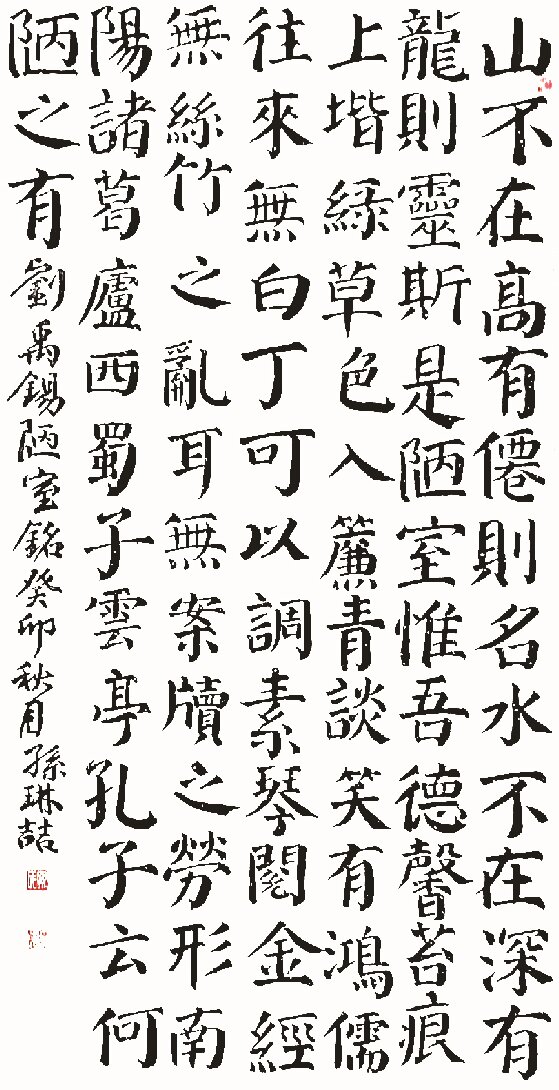 山不在高有僊則名水不在深有
龍則靈斯是陋室惟吾德馨苔痕
上堦緑草色入簾青談笑有鴻儒
往來無白丁可以調素琴閲金經
無絲竹之亂耳無案牘之勞形南
陽諸葛廬西蜀子雲亭孔子云何
陋之有劉禹錫陋室銘癸卯秋月孫琳喆